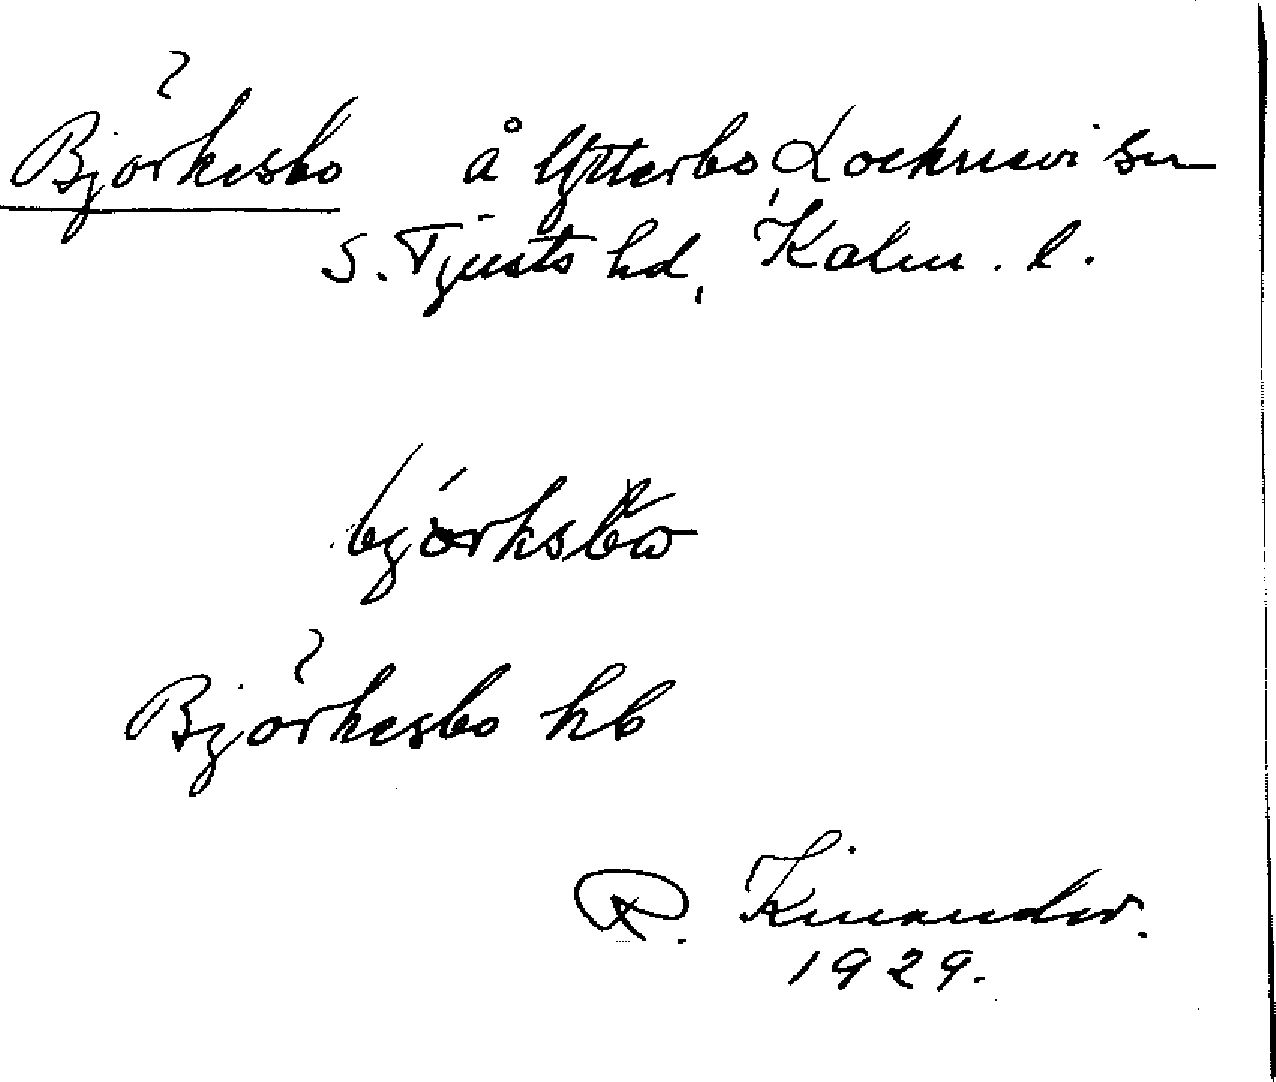 Björkesbo å Ytterbo, Locknevi sn
S. Tjusts hd, Kalm. l.
Björkesbo hb
R. Kinander.
1929.